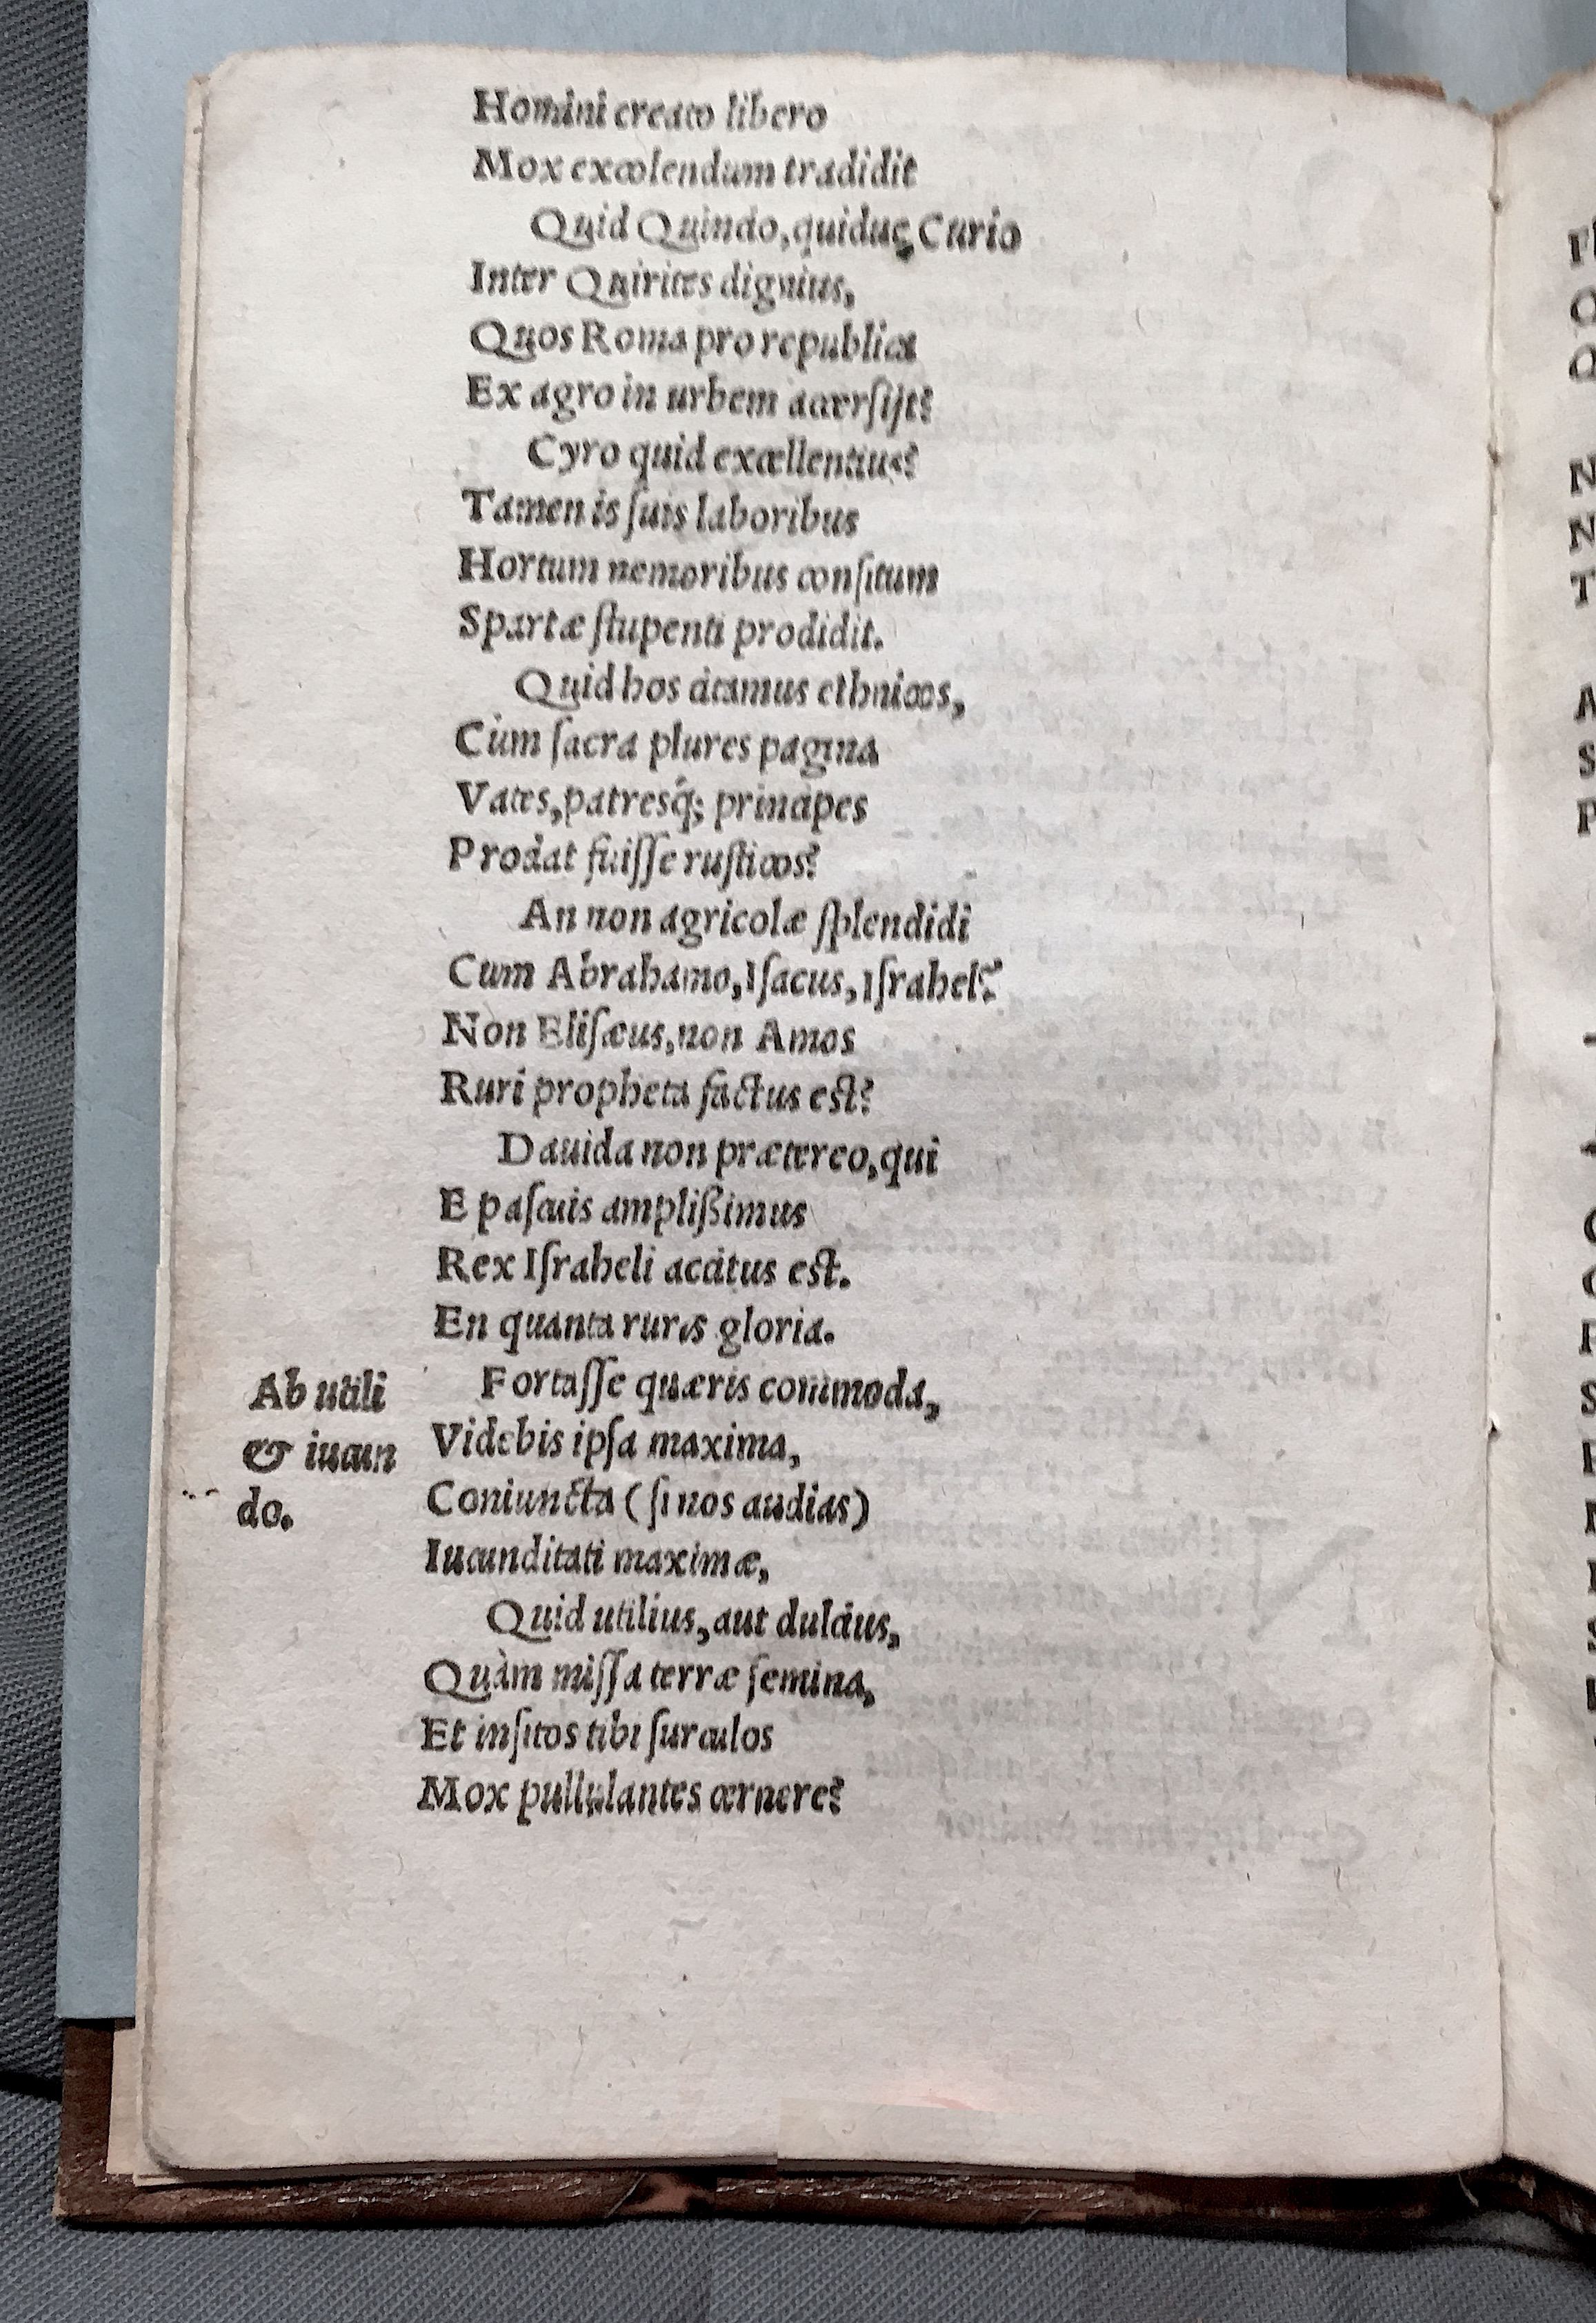 Homini creato libero
Mox excolendum tradidit
Quid Quinctio, quidue Curio
Inter Quirites dignius,
Quos Roma pro republica
Ex agro in urbem accerſijt?
Cyro quid excellentius?
Tamen is ſuis laboribus
Hortum nemoribus conſitum
Spartæ ſtupenti prodidit.
Quid hos citamus ethnicos,
Cùm ſacra plures pagina
Vates, patresq́; principes
Prodat fuiſſe ruſticos?
An non agricolæ ſplendidi
Cum Abrahamo, Iſacus, Iſrahel?
Non Eliſæus, non Amos
Ruri propheta factus est?
Dauida non prætereo, qui
E paſcuis amplißimus
Rex Iſraheli accitus est.
En quanta ruris gloria.
Ab utili
& iucun
do.
Fortaſſe quæris commoda,
Videbis ipſa maxima,
Coniuncta (ſi nos audias)
Iucunditati maximæ,
Quid utilius, aut dulcius,
Quàm miſſa terræ ſemina,
Et inſitos tibi ſurculos
Mox pullulantes cernere?